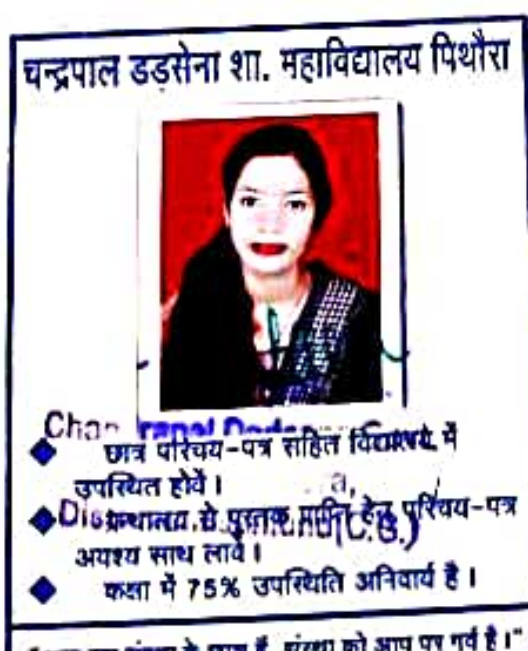 चन्द्रपाल डड़सेना शा. महाविद्यालय पिथौरा
छात्र परिचय-पत्र सहित में
उपस्थित होवें।
ग्रन्थालय से पुस्तक प्राप्ति हेतु परिचय-पत्र
अवश्य साथ लावें।
कक्षा में 75% उपस्थिति अनिवार्य है।
संस्था को आप पर गर्व है।"